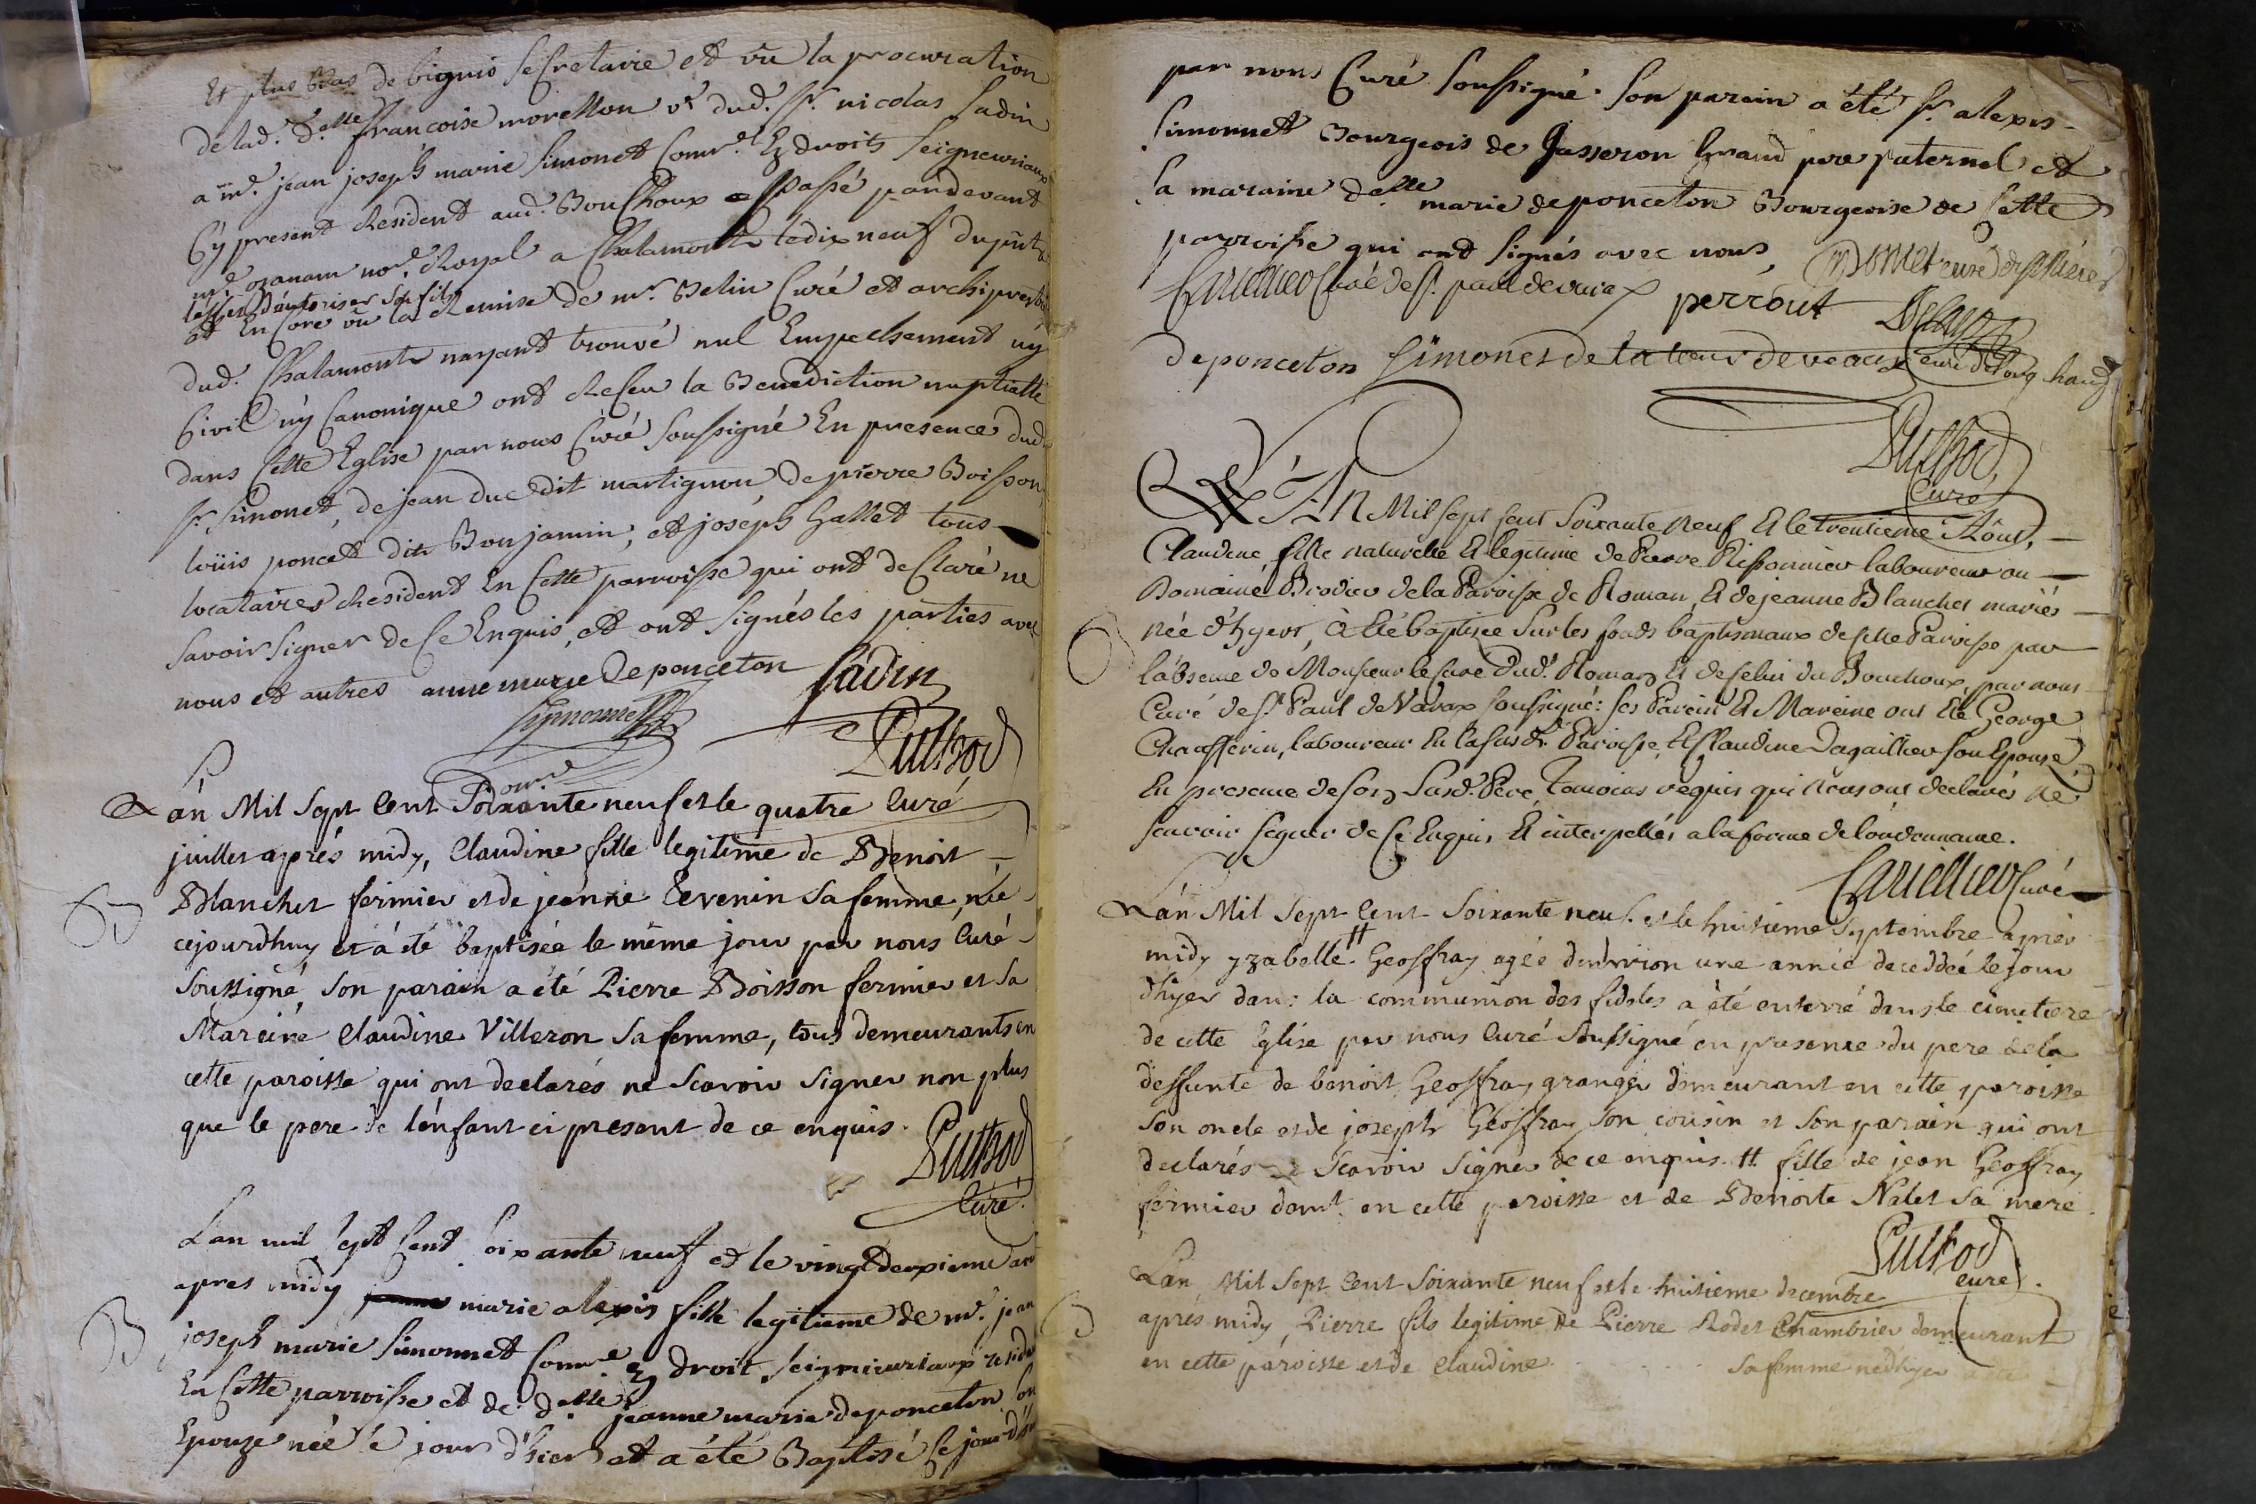 Et plus bas de bignis secretaire et vu la procuration
de lad. delle francoise morellon ve dud. sr. nicolas sadin
a me. jean joseph marie simonet comre. Es droits seigneuriaux
Cy present Resident aud. Bouchoux passé pardevant
me ozanam nore. Royal a Chalamont le dix neuf du pnt
leffet d'autoriser son fils
et Encore vu la Remise de mr. Belin Curé et archiprestre
dud. Chalamont nayant trouvé nul Empechement ny
Civil ny Canonique ont Receu la Benediction nuptialle
dans cette Eglise par nous Curé soussigné En presence dud.
sr. simonet, de jean duc dit martignon de pierre Boisson,
loüis poncet dit Bonjamin, et joseph Gallet tous
locataires Resident En Cette parroisse qui ont declaré ne
savoir signer de Ce Enquis, et ont signés les parties avec
nous et autres anne marie Deponceton Sadin
Symonnet
Duthod
curé
L'an Mil Sept Cent Soixante neuf et le quatre
juillet aprés midy, Claudine fille legitime de Benoit
Blanchet fermier et de jeanne Tevenin sa femme, née
cejourdhuy et a été baptisée le même jour par nous Curé
Soussigné, son parain a été Pierre Boisson fermier et sa
Mareine Claudine Villeron sa femme, tous demeurants en
cette paroisse qui ont declarés ne scavoir signer non plus
que le pere de l'enfant ci present de ce enquis.
Duthod
Curé.
B
Lan mil sept Cent soixante neuf et le vingt deuxieme aout
apres midy marie alexis fille legitieme de mr. jean
joseph marie simonnet Comre Es droit seignieuriaux reside
En Cette parroisse et de delle jeanne marie deponceton son
Epouze née le jour d'hier et a été Baptisé Ce jour d'hui
par nous Curé soussigné. son parain a été sr. alexis
simonnet Bourgeois de Jasseron Grand pere paternel et
sa maraine delle marie deponceton Bourgeoise de Cette
parroisse qui ont signés avec nous,
Curé de st. paul de varax perrout
deponceton Simonet de curé de long
Duthod
Curé
L'An Mil sept cent soixante neuf Et le trentieme Aôut,
Claudine, fille naturelle Et legitime de Pierre laboureur au
Domaine Brodier de la Paroisse de Roman, Et de jeanne Blanchet mariés
née d'hyer, à Eté baptisée sur les fonds baptismaux de cette Paroisse par
l'absence de Monsieur le curé dud. Roman Et de celui du Bouchoux, par nous
Curé de st. Paul de Varax soussigné: ses Parein Et Mareine ont été George
laboureur En la susd. Paroisse, Et Claudine Dagaillier son Epouse,
En presence de son susd. Pere, Temoins requis qui nous ont declarés ne
scavoir signer de Ce Enquis Et interpellés a la forme de l'ordonnance.
Curé
L'an Mil Sept Cent Soixante neuf et le huitieme Septembre aprés
midy yzabelle # Geoffray agée denviron une année decedée le jour
d'hyer dans la communion des fideles a été enterré dans le cimetiere
de cette Eglise par nous Curé Soussigné en presence du pere de la
deffunte de benoit Geoffray granger demeurant en cette paroisse
son oncle et de joseph Geoffray son cousin et son parain qui ont
declarés ne scavoir signer de ce enquis. # fille de jean Geoffray
fermier demt. en cette paroisse et de Benoite Nalet sa mere.
Duthod
curé.
L'an Mil Sept Cent Soixante neuf et le huitieme decembre
aprés midy, Pierre fils legitime de Pierre Rodet Chambrier demeurant
en cette paroisse et de Claudine sa femme né d'hyer a été